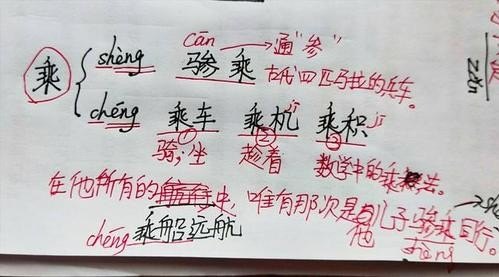 cān → 通"参"
乘 shèng 骖乘 古代四匹马拉的兵车。
chéng 乘车 乘机 乘积
① ② ③
骑;坐 趁着 数学中的乘法。
在他所有的 中,唯有那次是与儿子骖乘同行。
chéng 乘船远航 他 shèng